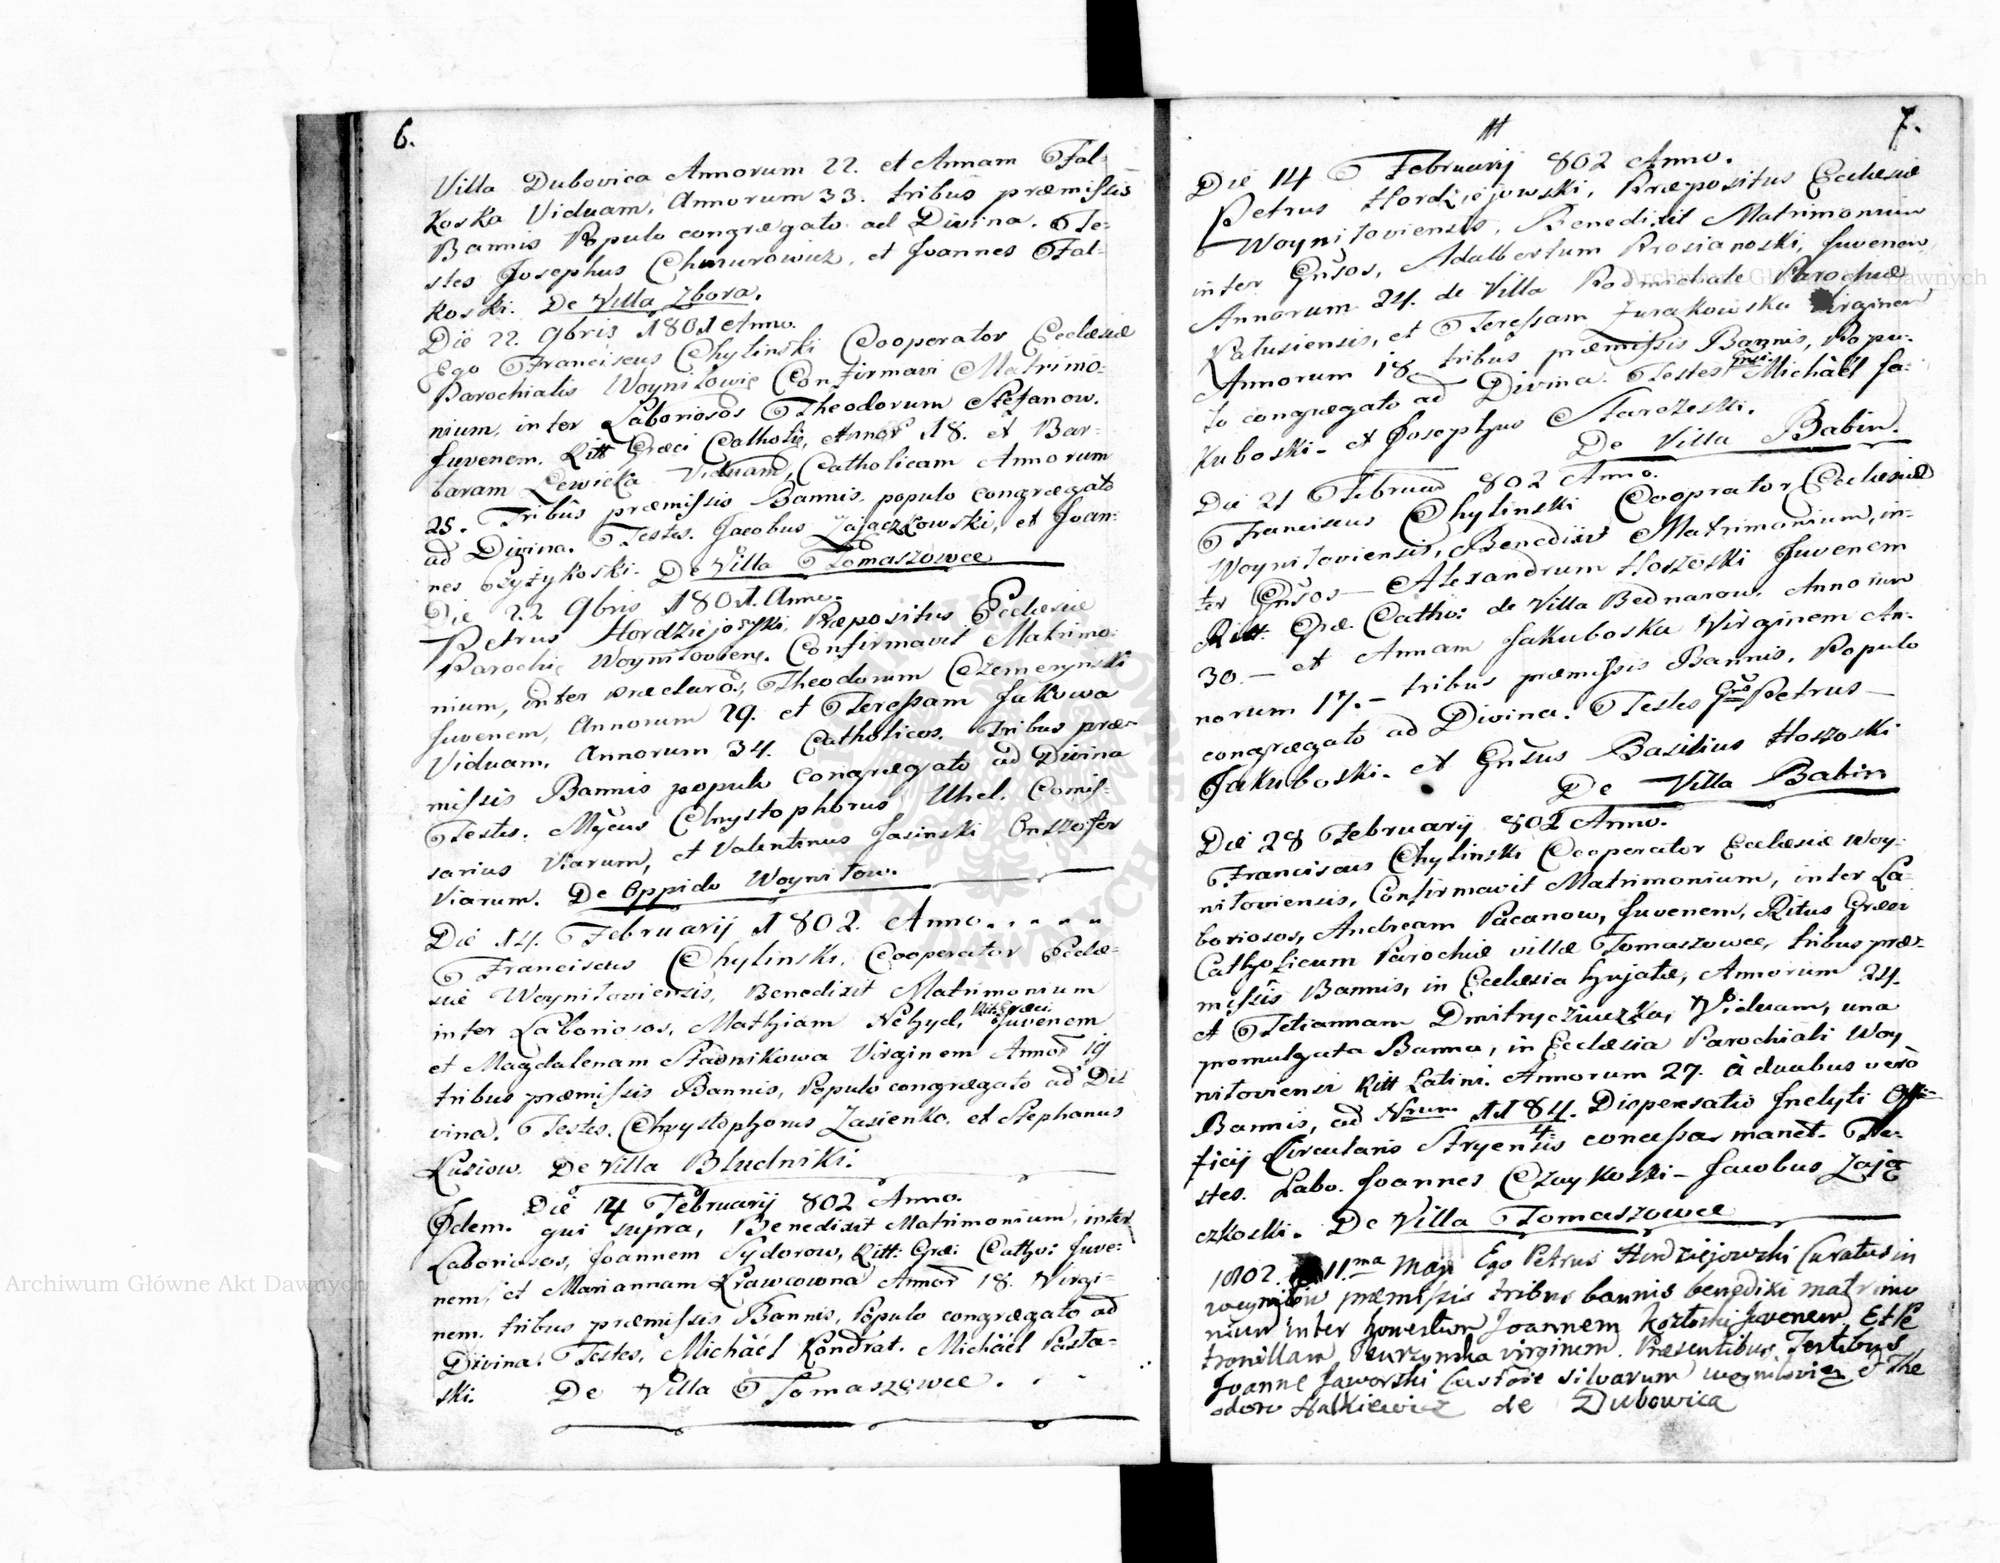 6.
Villa Dubovica Annorum 22. et Annam Fal-
koska Viduam, Annorum 33. tribus præmissis
Bannis Populo congregato ad Divina. Te-
stes Josephus Chmurowicz, et Joannes Fal-
koski. De Villa Zbora.
Die 22. 9bris 1801 Anno.
Ego Franciscus Chylinski Cooperator Ecclesiæ
Parochialis Woynilowie Confirmavi Matrimo-
nium, inter Laboriosos Theodorum Stefanow.
Juvenem. Ritt Græci Catholi, Annor 18. et Bar-
baram Lewicka Viduam, Catholicam Annorum
25. Tribus præmissis Bannis, populo congregato
ad Divina. Testes. Jacobus Zajączkowski, et Joan-
nes Czyżykoski. De Villa Tomaszowce
Die 22 9bris 1801. Anno.
Petrus Hordziejowski, Præpositus Ecclesiæ
Parochie Woynilowiens. Confirmavit Matrimo-
nium, inter præclaros, Theodorum Czemerynski
Juvenem, Annorum 29. et Teressam Jukowa
Viduam, Annorum 34. Catholicos. Tribus præ-
missis Bannis populo congregato ad Divina
Testes. Chrystophorus Uhel. Comis-
sarius Viarum, et Valentinus Jasinski
Viarum. De Oppido Woynilow.
Die 14. Februarij 1802. Anno. . . . .
Franciscus Chylinski, Cooperator Eccle-
siæ Woyniloviensis, Benedixit Matrimonium
inter Laboriosos, Mathiam Nehyd, Ritt Græci Juvenem
et Magdalenam Stadnikowa Virginem Annor 19
tribus præmissis Bannis, Populo congregato ad Di-
vina. Testes. Chrystophorus Zasienko. et Stephanus
Kusiow. De Villa Bludniki.
Die 14 Februarij 802 Anno.
Idem. qui supra, Benedixit Matrimonium, inter
Laboriosos, Joannem Sydorow, Ritt: Græ: Catho: Juve-
nem, et Mariannam Krawcowna Annor 18. Virgi-
nem. tribus præmissis Bannis, Populo congregato ad
Divina. Testes, Michäel Kondrat. Michäel Pasta-
ski. De Villa Tomaszowce.
7.
Die 14 Februarij 802 Anno.
Petrus Hordziejowski, Præpositus Ecclesiæ
Woyniloviensis, Benedixit Matrimonium
inter Gñsos, Adalbertum Prosianoski, Juvenem
Annorum 24. de Villa Podmichale Parochiæ
Kalusiensis, et Teressam Zurakowska Virginem
Annorum 18. tribus præmissis Bannis, Popu-
lo congregato ad Divina. Testes Michäel Ja-
kuboski - et Josephus Starzeski.
De Villa Babin.
Die 21 Februar 802 Anno.
Franciscus Chylinski Cooprator Ecclesiæ
Woyniloviensis, Benedixit Matrimonium, in-
ter Gñsos - Alexandrum Hoszoski Juvenem
Ritt: Græ. Catho: de Villa Bednarow. Annorum
30. - et Annam Jakuboska Virginem An-
norum 17. - tribus præmissis Bannis, Populo
congregato ad Divina. Testes Gñs Petrus -
Jakuboski. et Gñsus Basilius Hoszoski
De Villa Babin
Die 28 Februarij 802 Anno.
Franciscus Chylinski Cooperator Ecclesiæ Woy-
niloviensis, Confirmavit Matrimonium, inter La-
boriosos, Andream Pacanow, Juvenem, Ritus Græci
Catholicum Parochiæ villæ Tomaszowce, tribus præ-
missis Bannis, in Ecclesia hujate, Annorum 24.
et Tetiannam Viduam, una
promulgata Banna, in Ecclesia Parochiali Woy
niloviensi Ritt Latini. Annorum 27. à duabus vero
Bannis, ad Nrum 1184. Dispensatio Inclyti Offi-
ficij Circularis Stryensis concessa manet. Te-
stes. Labo. Joannes Czaykoski - Jacobus Zają
czkoski. De Villa Tomaszowce
1802. 11ma Maji Ego Petrus Hordziejowski Curatus in
Woynilow præmissis tribus bannis benedixi matrimo
nium inter honestum Joannem Kozłoski Juvenem Et Pe
tronillam virginem. Præsentibus Testibus
Joanne Jaworski Custode silvarum et The
odoro Halkiewicz de Dubowica